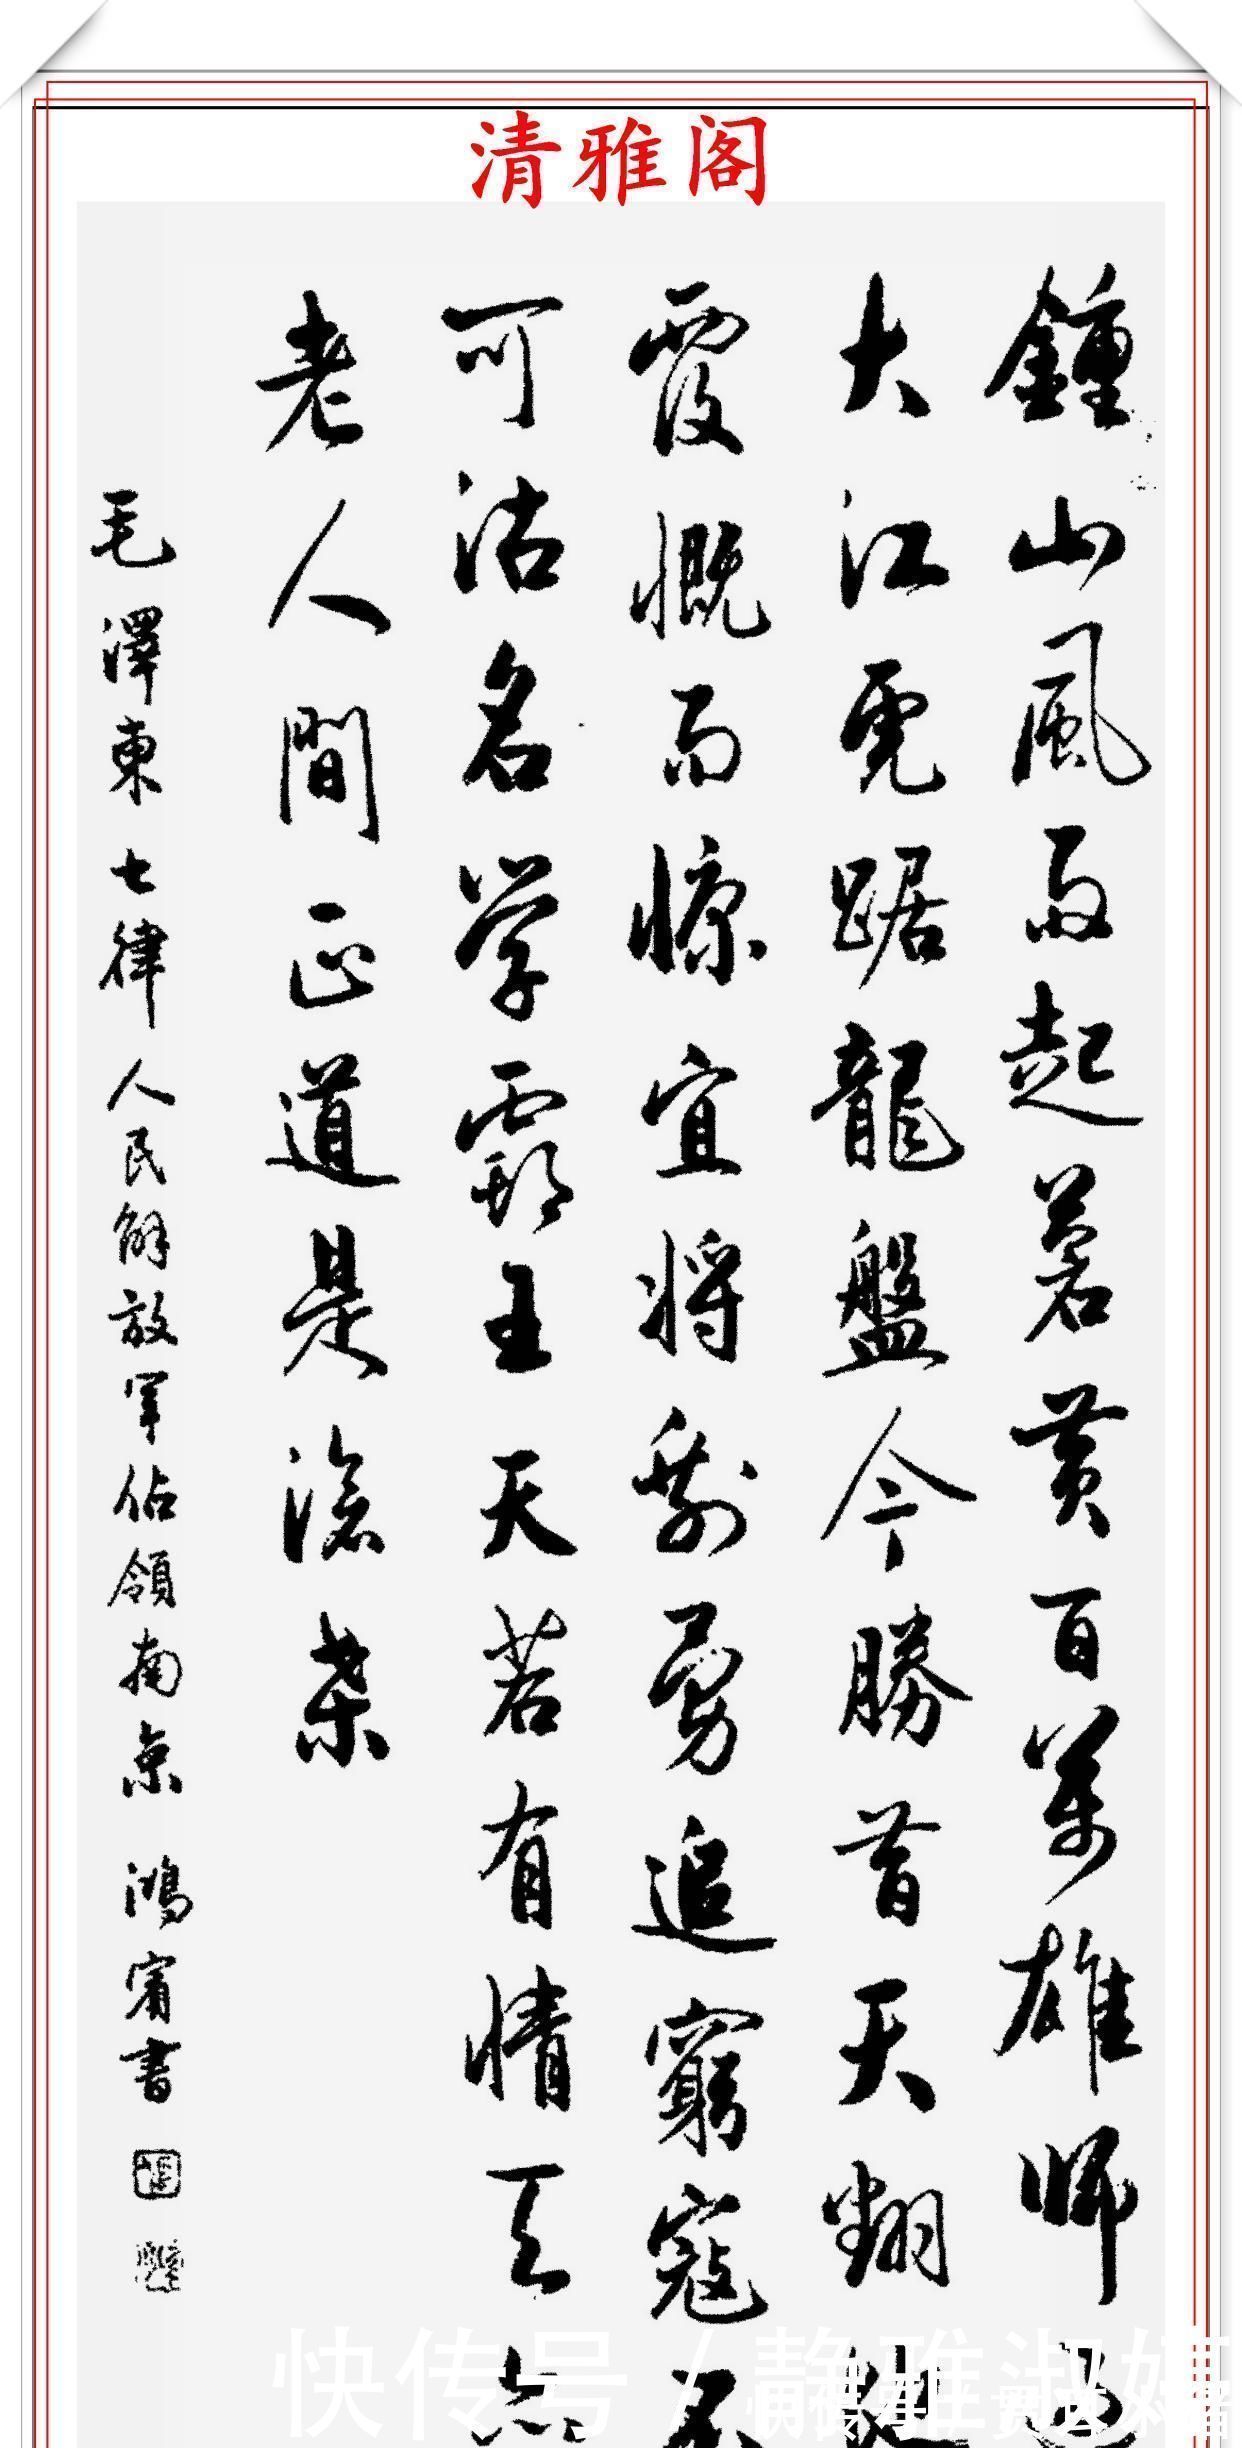 清雅阁
鍾山風雨起蒼黄百萬雄師過
大江虎踞龍盤今勝昔天翻地
覆慨而慷宜將剩勇追窮寇不
可沽名学霸王天若有情天亦
老人間正道是滄桑
毛澤東 七律 人民解放軍佔領南京 鴻賓書
快传号 / 静雅淑嫣